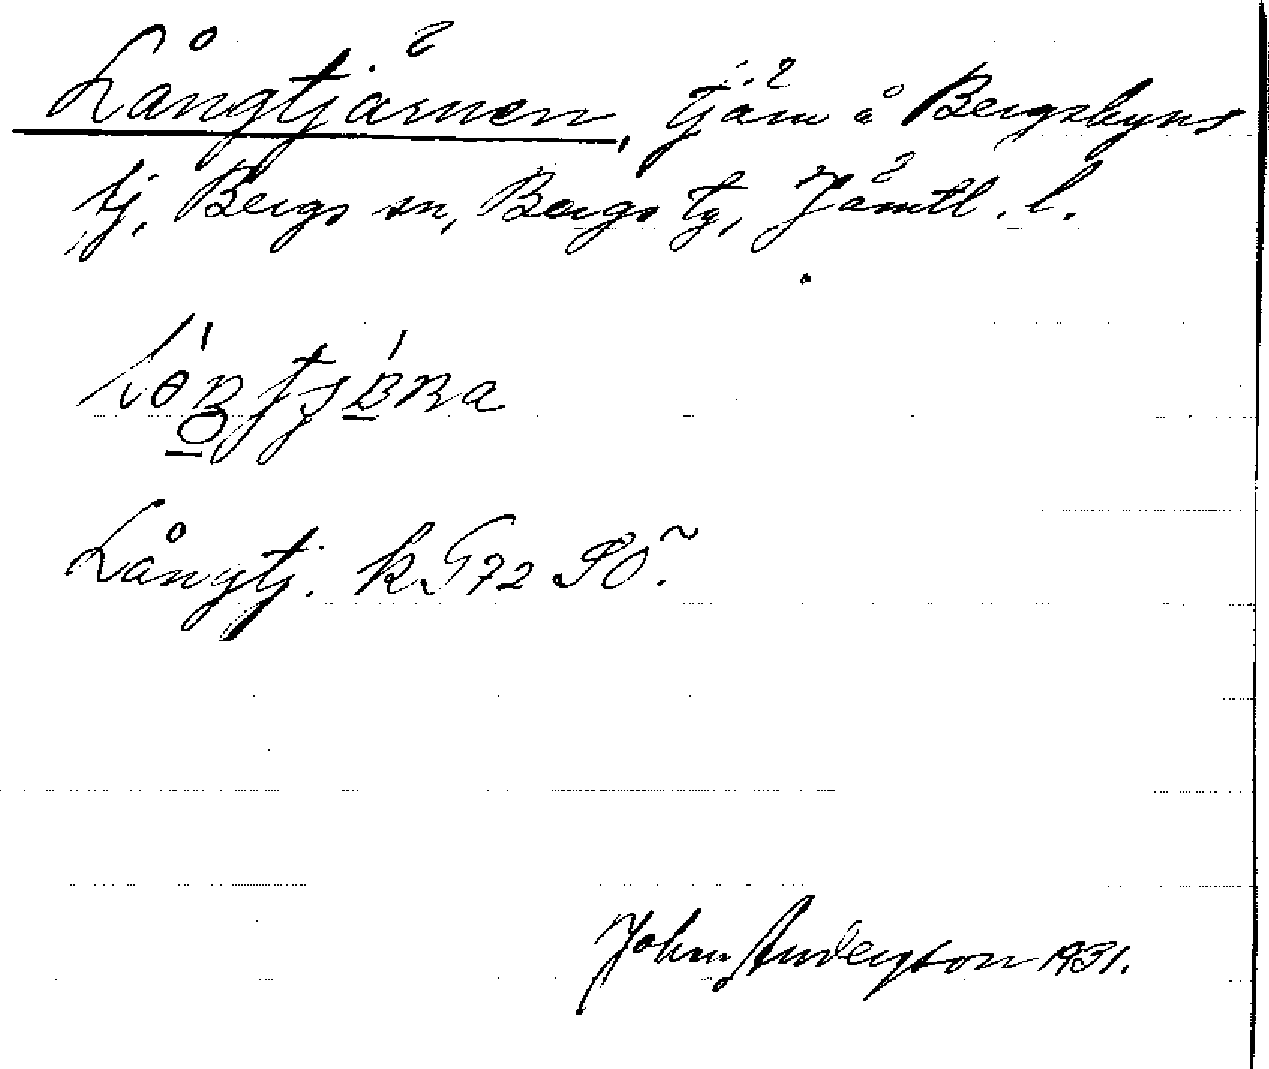 Långtjärnen, tjärn å Bergsbyns
tj, Bergs sn, Bergs tg, Jämtl. l.
Långtj. k G 72 SÖ.
John Anderson 1931.